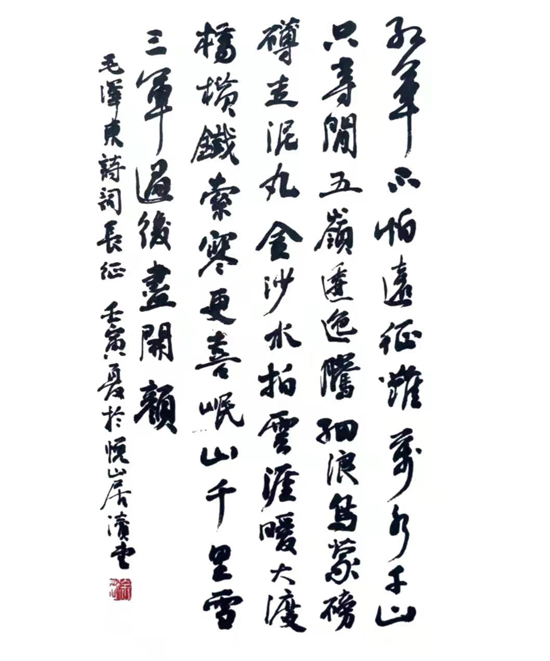 紅軍不怕遠征難萬水千山
只等閒五嶺逶迤騰細浪烏蒙磅
礴走泥丸金沙水拍雲涯暖大渡
橋橫鐵索寒更喜岷山千里雪
三軍過後盡開顏
毛澤東詩詞長征 壬寅夏於悅山居